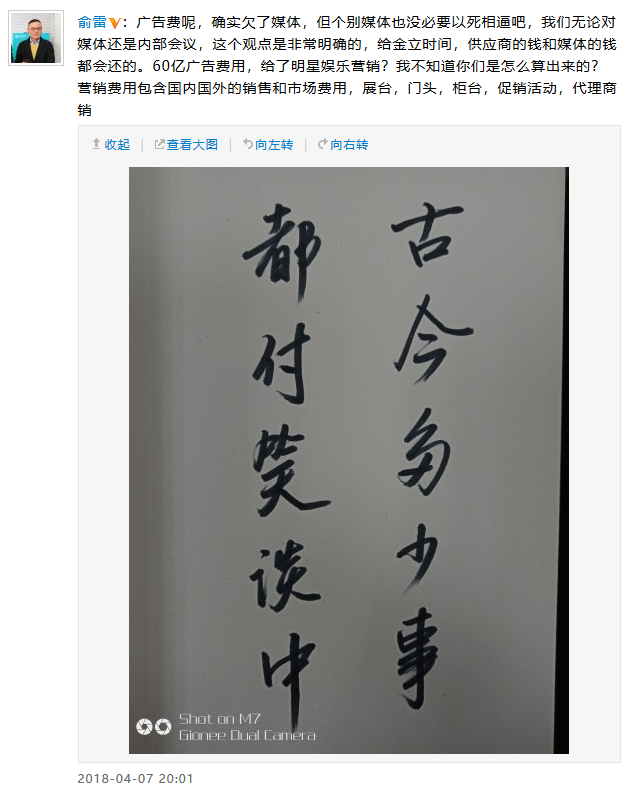 俞雷V：广告费呢，确实欠了媒体，但个别媒体也没必要以死相逼吧，我们无论对
媒体还是内部会议，这个观点是非常明确的，给金立时间，供应商的钱和媒体的钱
都会还的。60亿广告费用，给了明星娱乐营销？我不知道你们是怎么算出来的？
营销费用包含国内国外的销售和市场费用，展台，门头，柜台，促销活动，代理商
销
收起 | 查看大图 | 向左转 | 向右转
古今多少事
都付笑谈中
Shot on M7
Gionee Dual Camera
2018-04-07 20:01